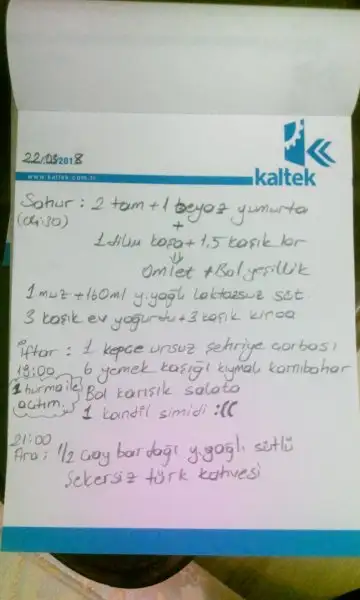 kaltek
22/05/2018
www.kaltek.com.tr
Sahur : 2 tam + 1 beyaz yumurta
(04:30)
+
1 dilim kaşar + 1,5 kaşık lor
⇓
Omlet + Bol yeşillik
1 muz + 160ml y.yağlı laktozsuz süt
3 kaşık ev yoğurdu + 3 kaşık kinoa
iftar : 1 kepçe unsuz şehriye çorbası
19:00 6 yemek kaşığı kıymalı karnıbahar
1 hurma ile açtım. Bol karışık salata
1 kandil simidi :((
21:00
Ara : 1/2 çay bardağı y.yağlı sütlü
Şekersiz türk kahvesi